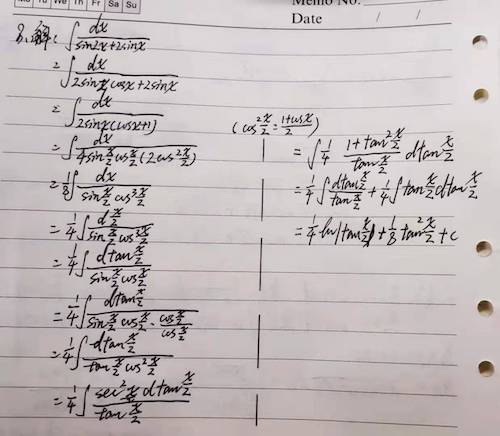 Mo Tu We Th Fr Sa Su
Memo No.
Date / /
8. 解: ∫ dx/(sin2x+2sinx)
= ∫ dx/(2sinx cosx+2sinx)
= ∫ dx/(2sinx(cosx+1))
= ∫ dx/(4sin x/2 cos x/2 (2cos² x/2))
= 1/8 ∫ dx/(sin x/2 cos³ x/2)
= 1/4 ∫ d x/2/(sin x/2 cos³ x/2)
= 1/4 ∫ dtan x/2/(sin x/2 cos x/2)
= 1/4 ∫ dtan x/2/(sin x/2 cos x/2 · cos x/2/cos x/2)
= 1/4 ∫ dtan x/2/(tan x/2 cos² x/2)
= 1/4 ∫ sec² x/2 dtan x/2/tan x/2
(cos² x/2 = (1+cosx)/2)
= ∫ 1/4 (1+tan² x/2)/(tan x/2) dtan x/2
= 1/4 ∫ dtan x/2/tan x/2 + 1/4 ∫ tan x/2 dtan x/2
= 1/4 ln|tan x/2| + 1/8 tan² x/2 + c